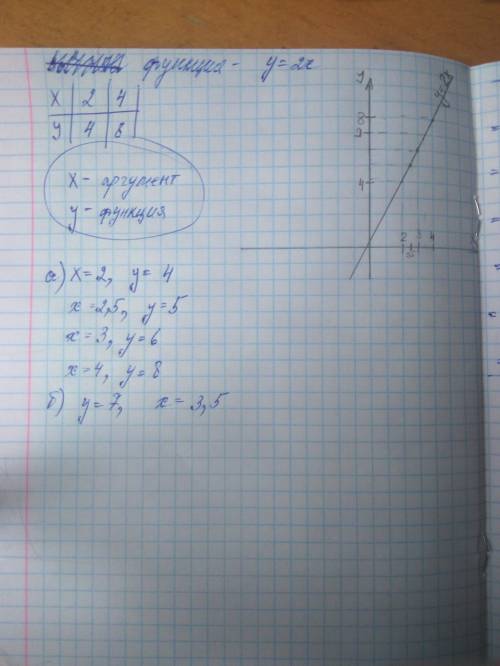 функция - y=2x
x | 2 | 4
y | 4 | 8
x - аргумент
y - функция
а) x=2, y=4
x=2,5, y=5
x=3, y=6
x=4, y=8
б) y=7, x=3,5
y
y=2x
8
4
2 3 4